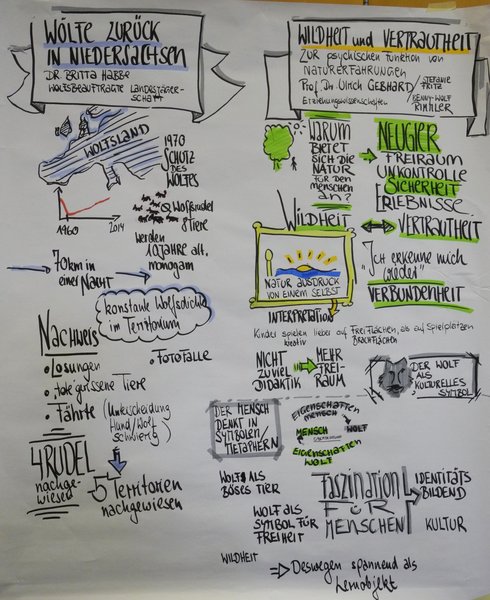 WÖLFE ZURÜCK
IN NIEDERSACHSEN
DR. BRITTA HABBE
WOLFSBEAUFTRAGTE LANDESJÄGER-
SCHAFT
WOLFSLAND
1970
SCHUTZ
DES
WOLFES
1960
2014
Ø Wolfsrudel
8 Tiere
werden
10 JAHRE alt.
monogam
70 km in
einer NACHT
konstante Wolfsdichte
im Territorium
NACHWEIS
• Losungen
• FOTOFALLE
• tote gerissene Tiere
• Fährte (Unterscheidung
Hund/Wolf
schwierig)
4 RUDEL
nachge-
wiesen
Territorien
nachgewiesen
WILDHEIT und VERTRAUTHEIT
ZUR psychischen Funktion von
NATURERFAHRUNGEN
Prof. Dr. Ulrich GEBHARD/
Erziehungswissenschaften
STEFANIE
FRITZ
RINKLER
WARUM
BIETET
SICH DIE
NATUR
FÜR DEN
MENSCHEN
AN?
NEUGIER
FREIRAUM
UNKONTROLLE
SICHERHEIT
ERLEBNISSE
WILDHEIT
VERTRAUTHEIT
NATUR AUSDRUCK
VON EINEM SELBST
"Ich erkenne mich
wieder"
VERBUNDENHEIT
INTERPRETATION
Kinder spielen lieber auf FREIFLÄCHEN, als auf Spielplätzen
kreativ
BRACHFLÄCHEN
NICHT
ZUVIEL
DIDAKTIK
MEHR
FREI-
RAUM
DER WOLF
ALS
KULTURELLES
SYMBOL
DER MENSCH
DENKT IN
SYMBOLEN/
METAPHERN
EIGENSCHAFTEN
MENSCH
WOLF
MENSCH
EIGENSCHAFTEN
WOLF
WOLF ALS
BÖSES TIER
WOLF ALS
SYMBOL FÜR
FREIHEIT
WILDHEIT
FASZINATION
FÜR
MENSCHEN
IDENTITÄTS
BILDEND
KULTUR
⇒ Deswegen spannend als
Lernobjekt